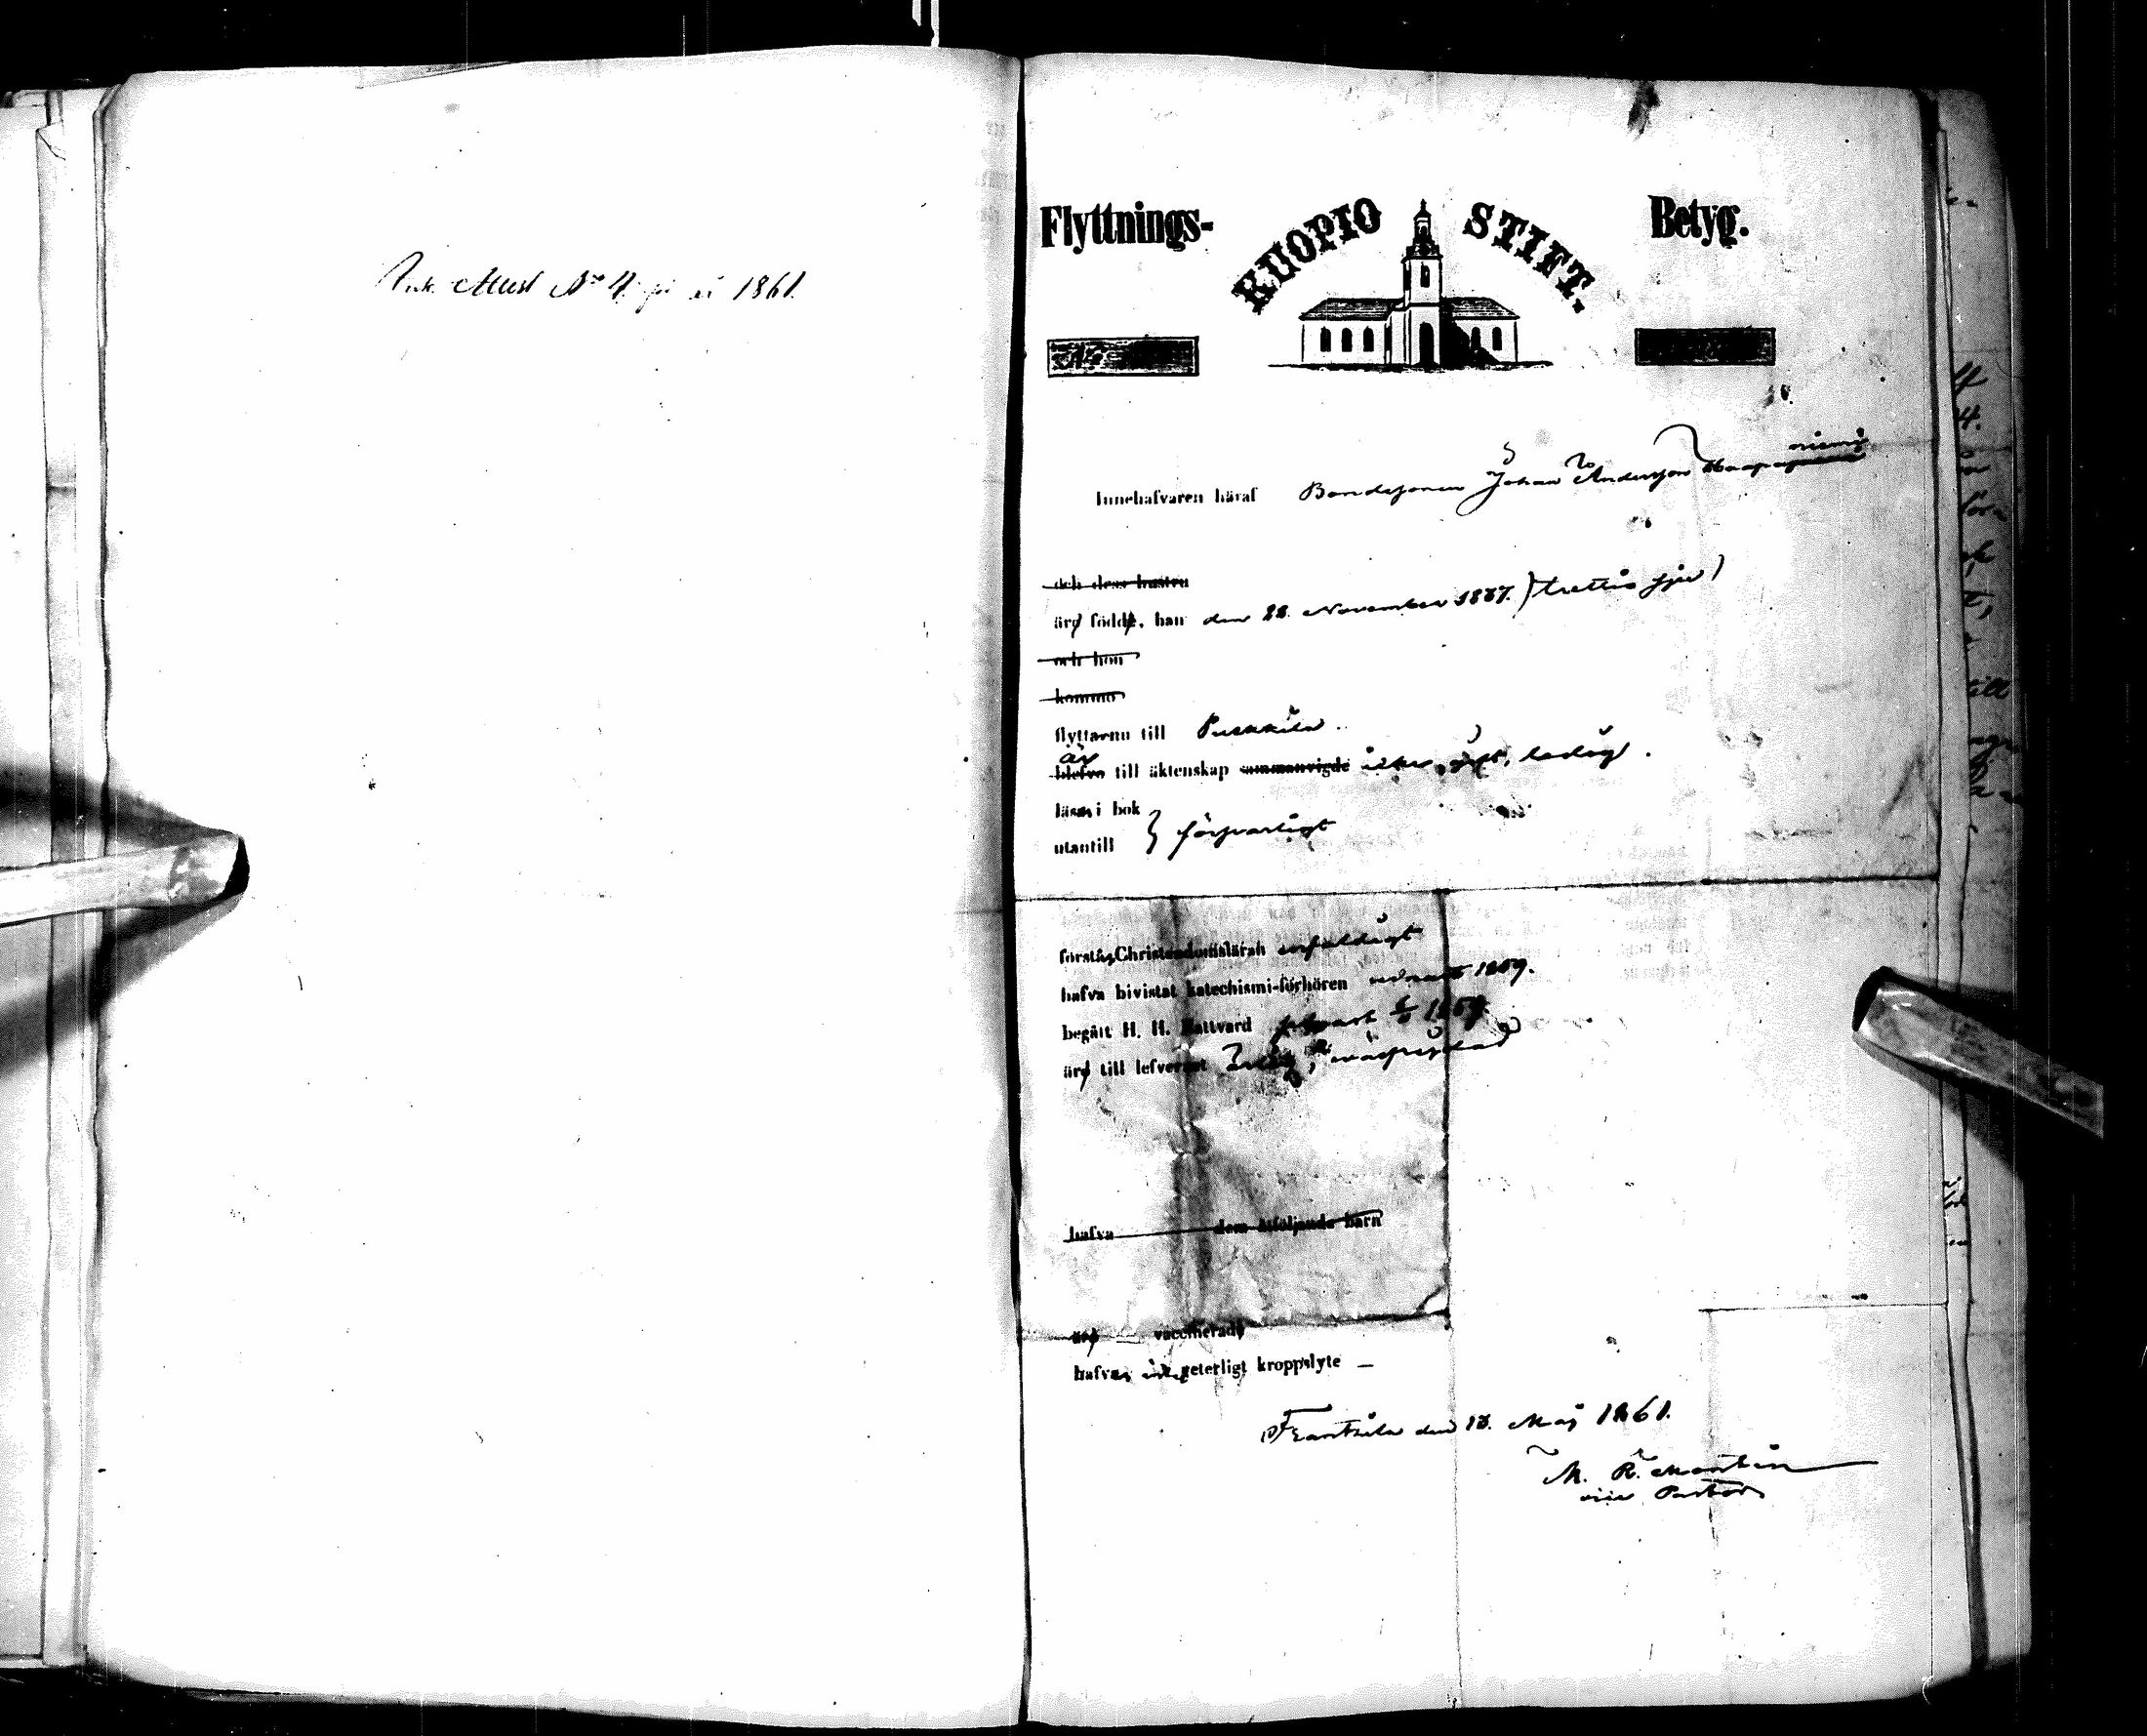 Ink. Attest No 4 för år 1861.
Flyttnings- KUOPIO STIFT. Betyg.
niemi
Innehafvaren häraf Bondesonen Johan Andersson Haapa
och dess hustru
äro födde, han den 22. November 1837. (trettio sju)
och hon
komma
flyttarnu till Pulkkila.
är
blefvo till äktenskap sammanvigde icke gift, ledig.
läsa i bok
utantill } försvarligt
förstå Christendomsläran enfaldigt
hafva bivistat katechismi-förhören 1859.
begått H. H. Nattvard 1859
äro till lefvernet
hafva dem åtföljande barn
äro — vaccinerade
hafva icke veterligt kroppslyte —
Frantsila den 13. Maj 1861.
M. R. Montin
vice Pastor